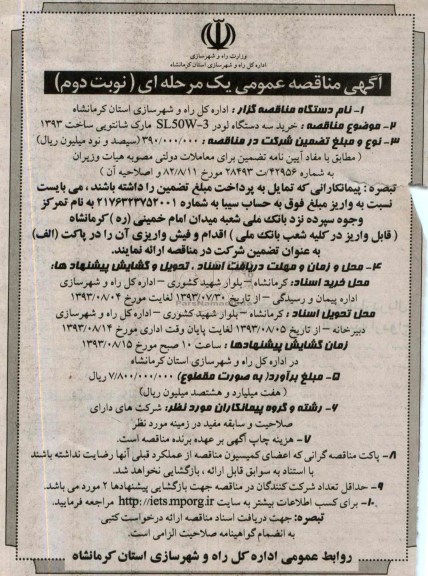 وزارت راه و شهرسازی
اداره کل راه و شهرسازی استان کرمانشاه
آگهی مناقصه عمومی یک مرحله ای ( نوبت دوم)
۱- نام دستگاه مناقصه گزار : اداره کل راه و شهرسازی استان کرمانشاه
۲- موضوع مناقصه : خرید سه دستگاه لودر SL50W-3 مارک شانتویی ساخت ۱۳۹۳
۳- نوع و مبلغ تضمین شرکت در مناقصه : ۳۹۰/۰۰۰/۰۰۰ (سیصد و نود میلیون ریال)
( مطابق با مفاد آیین نامه تضمین برای معاملات دولتی مصوبه هیات وزیران
به شماره ۴۲۹۵۶/ت ۲۸۴۹۳ مورخ ۸۲/۸/۱۱ و اصلاحیه آن )
تبصره : پیمانکارانی که تمایل به پرداخت مبلغ تضمین را داشته باشند ، می بایست
نسبت به واریز مبلغ فوق به حساب سیبا به شماره ۲۱۷۶۲۳۳۷۵۲۰۰۱ به نام تمرکز
وجوه سپرده نزد بانک ملی شعبه میدان امام خمینی (ره) کرمانشاه
( قابل واریز در کلیه شعب بانک ملی ) اقدام و فیش واریزی آن را در پاکت (الف)
به عنوان تضمین شرکت در مناقصه ارائه نمایند.
۴- محل و زمان و مهلت دریافت اسناد ، تحویل و گشایش پیشنهاد ها:
محل خرید اسناد: کرمانشاه – بلوار شهید کشوری – اداره کل راه و شهرسازی
اداره پیمان و رسیدگی – از تاریخ ۱۳۹۳/۰۷/۳۰ لغایت مورخ ۱۳۹۳/۰۸/۰۴
محل تحویل اسناد : کرمانشاه – بلوار شهید کشوری – اداره کل راه و شهرسازی
دبیرخانه – از تاریخ ۱۳۹۳/۰۸/۰۵ لغایت پایان وقت اداری مورخ ۱۳۹۳/۰۸/۱۴
زمان گشایش پیشنهادها : ساعت ۱۰ صبح مورخ ۱۳۹۳/۰۸/۱۵
در اداره کل راه و شهرسازی استان کرمانشاه
۵- مبلغ برآورد( به صورت مقطوع) ۷/۸۰۰/۰۰۰/۰۰۰ ریال
( هفت میلیارد و هشتصد میلیون ریال)
۶- رشته و گروه پیمانکاران مورد نظر: شرکت های دارای
صلاحیت و سابقه مفید در زمینه مورد نظر
۷- هزینه چاپ آگهی بر عهده برنده مناقصه است.
۸- پاکت مناقصه گرانی که اعضای کمیسیون مناقصه از عملکرد قبلی آنها رضایت نداشته باشند
با استناد به سوابق قابل ارائه ، بازگشایی نخواهد شد.
۹- حداقل تعداد شرکت کنندگان در مناقصه جهت بازگشایی پیشنهادها ۲ مورد می باشد.
۱۰- برای کسب اطلاعات بیشتر به سایت http://iets.mporg.ir مراجعه فرمایید.
تبصره: جهت دریافت اسناد مناقصه ارائه درخواست کتبی
به انضمام گواهینامه صلاحیت الزامی است.
روابط عمومی اداره کل راه و شهرسازی استان کرمانشاه